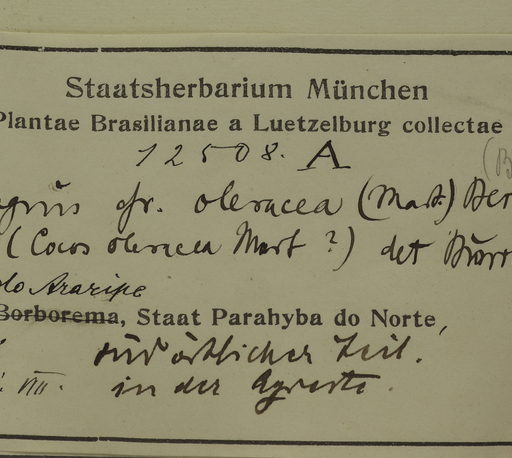 Staatsherbarium München
Plantae Brasilianae a Luetzelburg collectae
12508. A
(B
agrus cfr. oleracea (Mart.) Bec
(Cocos oleracea Mart?) det Burr
do Araripe
Borborema, Staat Parahyba do Norte,
südöstlicher Teil.
VIII. in der Agreste.